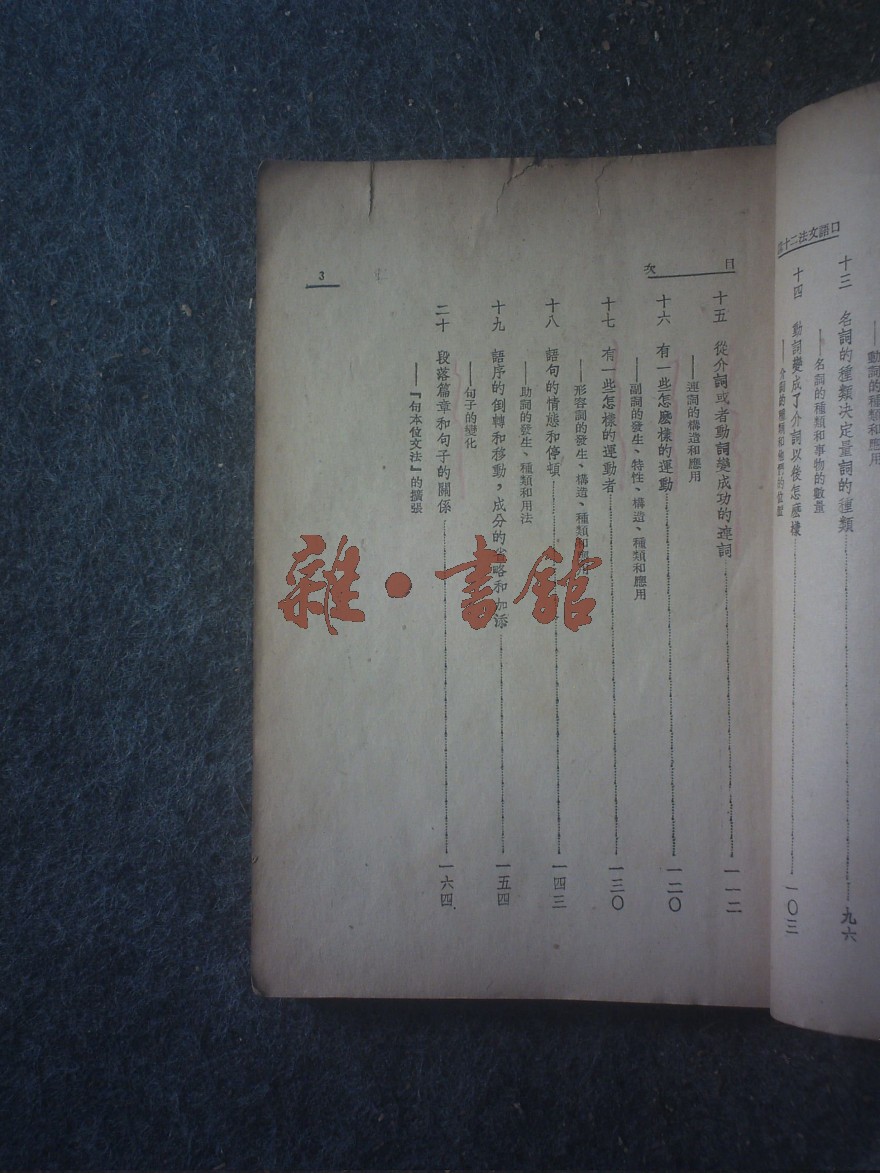 口語文法二十
動詞的種類和應用
十三 名詞的種類決定量詞的種類 九六
——名詞的種類和事物的數量
十四 動詞變成了介詞以後怎麽樣 一〇三
——介詞的種類和他們的位置
目次
十五 從介詞或者動詞變成功的連詞 一一二
——連詞的構造和應用
十六 有一些怎麽樣的運動 一二〇
——副詞的發生、特性、構造、種類和應用
十七 有一些怎樣的運動者 一三〇
——形容詞的發生、構造、種類和應用
十八 語句的情態和停頓 一四三
——助詞的發生、種類和用法
十九 語序的倒轉和移動，成分的省略和加添 一五四
——句子的變化
二十 段落篇章和句子的關係 一六四
——『句本位文法』的擴張
3
雜·書館